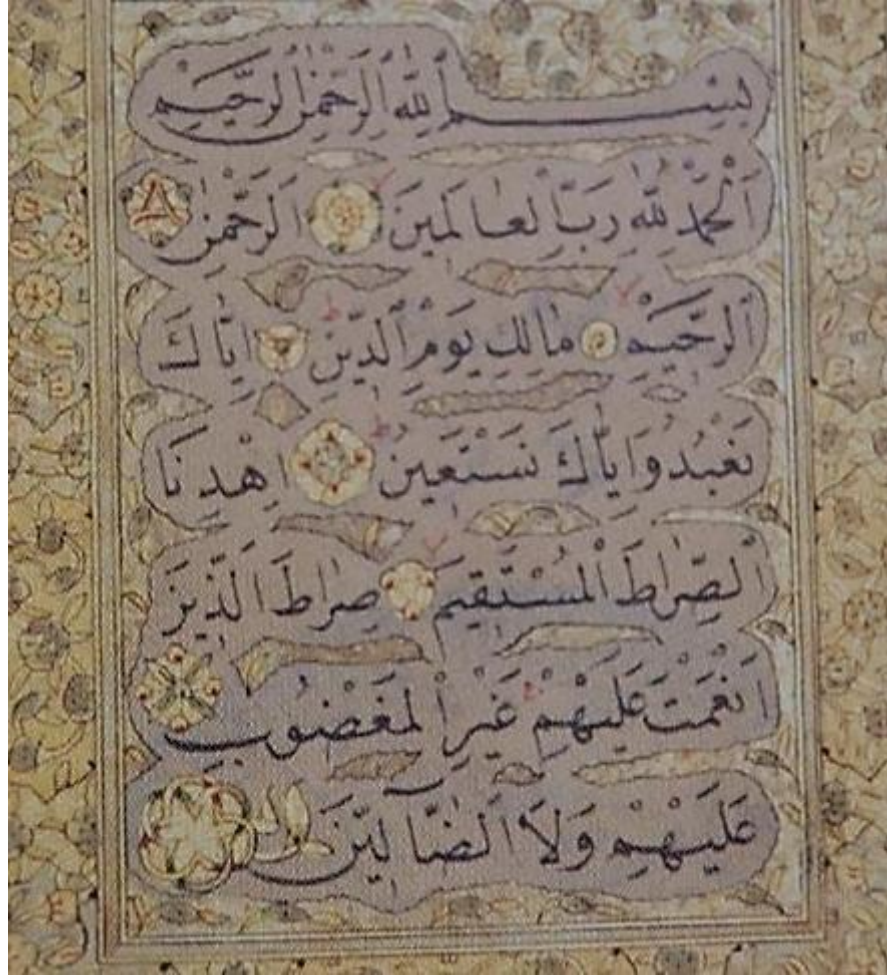 بِسْمِ ٱللّٰهِ ٱلرَّحْمٰنِ ٱلرَّحِيمِ
اَلْحَمْدُ لِلّٰهِ رَبِّ الْعَالَمِينَ اَلرَّحْمٰنِ
ٱلرَّحِيمِ مَالِكِ يَوْمِ ٱلدِّينِ اِيَّاكَ
نَعْبُدُ وَاِيَّاكَ نَسْتَعِينُ اِهْدِنَا
ٱلصِّرَاطَ الْمُسْتَقِيمَ صِرَاطَ الَّذِينَ
اَنْعَمْتَ عَلَيْهِمْ غَيْرِ الْمَغْضُوبِ
عَلَيْهِمْ وَلَا ٱلضَّالِّينَ